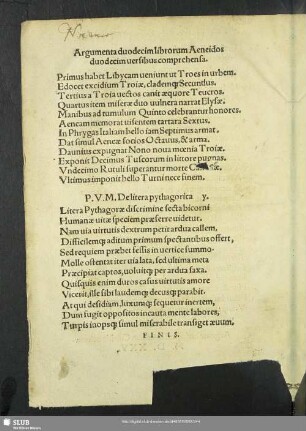 Argumenta duodecim librorum Aeneidos
duodecim versibus comprehensa.
Primus habet Libycam ueniunt ut Troes in urbem.
Edocet excidium Troiæ, clademq; Secundus.
Tertius a Troia uectos canit æquore Teucros.
Quartus item miseræ duo vulnera narrat Elysæ.
Manibus ad tumulum Quinto celebrantur honores.
Aeneam memorat uisentem tartara Sextus.
In Phrygas Italiam bello iam Septimus armat.
Dat simul Aeneæ socios Octauus, & arma.
Daunius expugnat Nono noua mœnia Troiæ.
Exponit Decimus Tuscorum in littore pugnas.
Vndecimo Rutuli superantur morte
Vltimus imponit bello Turni nece finem.
P. V. M. De litera pythagorica y.
Litera Pythagoræ discrimine secta bicorni
Humanæ uitæ speciem præferre uidetur.
Nam uia uirtutis dextrum petit ardua callem,
Difficilemq; aditum primum spectantibus offert,
Sed requiem præbet fessis in uertice summo.
Molle ostentat iter uia lata, sed ultima meta
Præcipitat captos, uoluitq; per ardua saxa.
Quisquis enim duros casus uirtutis amore
Vicerit, ille sibi laudemq; decusq; parabit.
At qui desidiam, luxumq; sequetur inertem,
Dum fugit oppositos incauta mente labores,
Turpis inopsq; simul miserabile transiget æuum.
FINIS.
SLUB